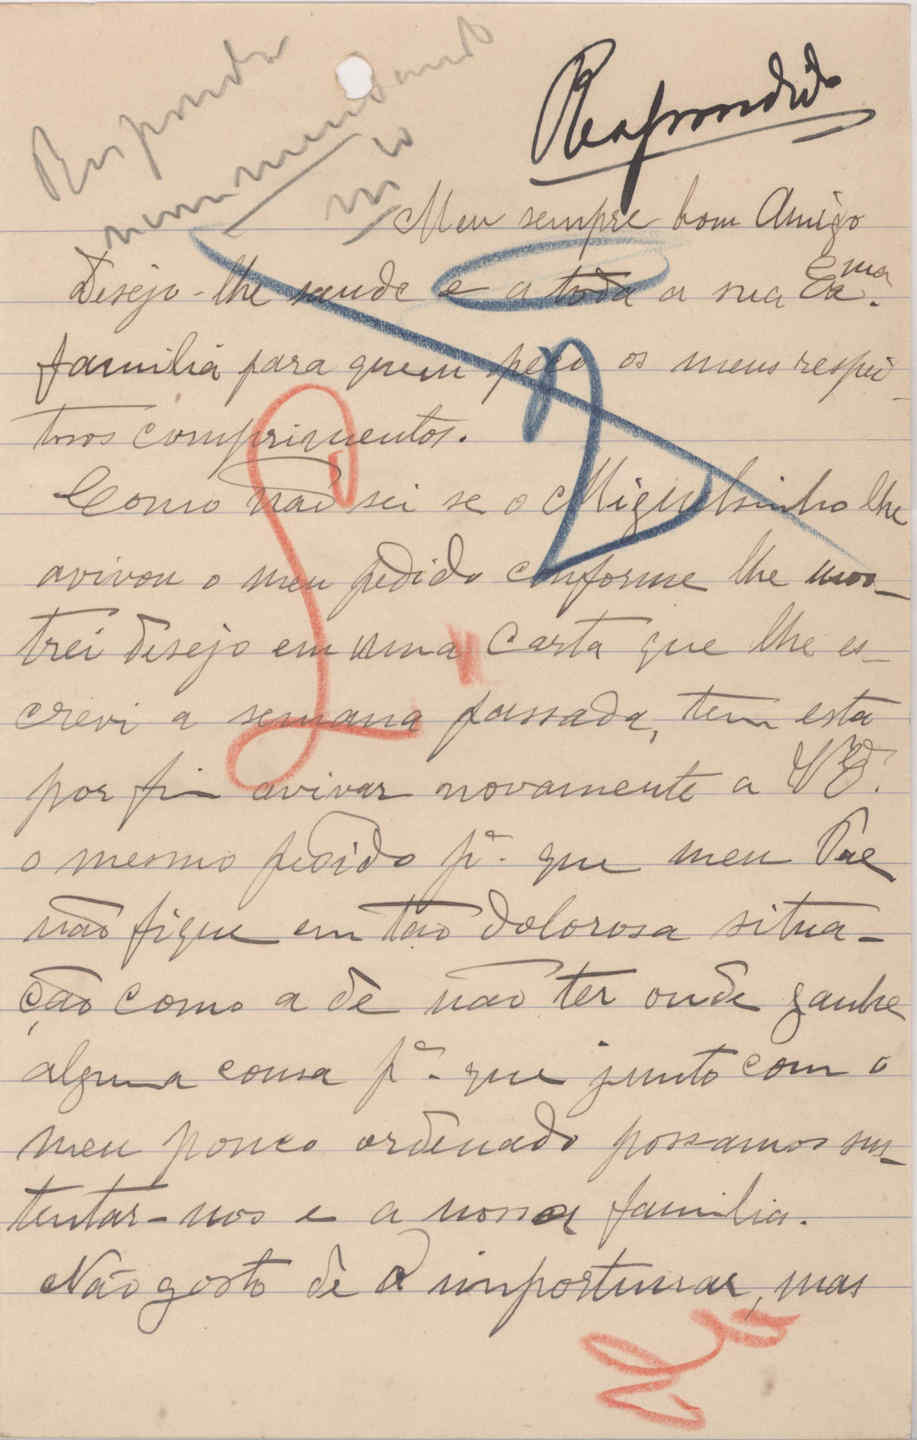 Responda
Respondido
Meu sempre bom Amigo
Desejo-lhe saude e a toda a sua Exma.
familia para quem peço os meus respei-
tosos comprimentos.
Como não sei se o Miguelsinho lhe
avivou o meu pedido conforme lhe mos-
trei desejo em uma carta que lhe es-
crevi a semana passada, tem esta
por fim avivar novamente a V. Ex.
o mesmo pedido pª. que meu Pae
não fique em tão dolorosa situa-
ção como a de não ter onde ganhe
alguma cousa pª. que junto com o
meu pouco ordenado possamos sus-
tentar-nos e a nossa familia.
Não gosto de o importunar, mas